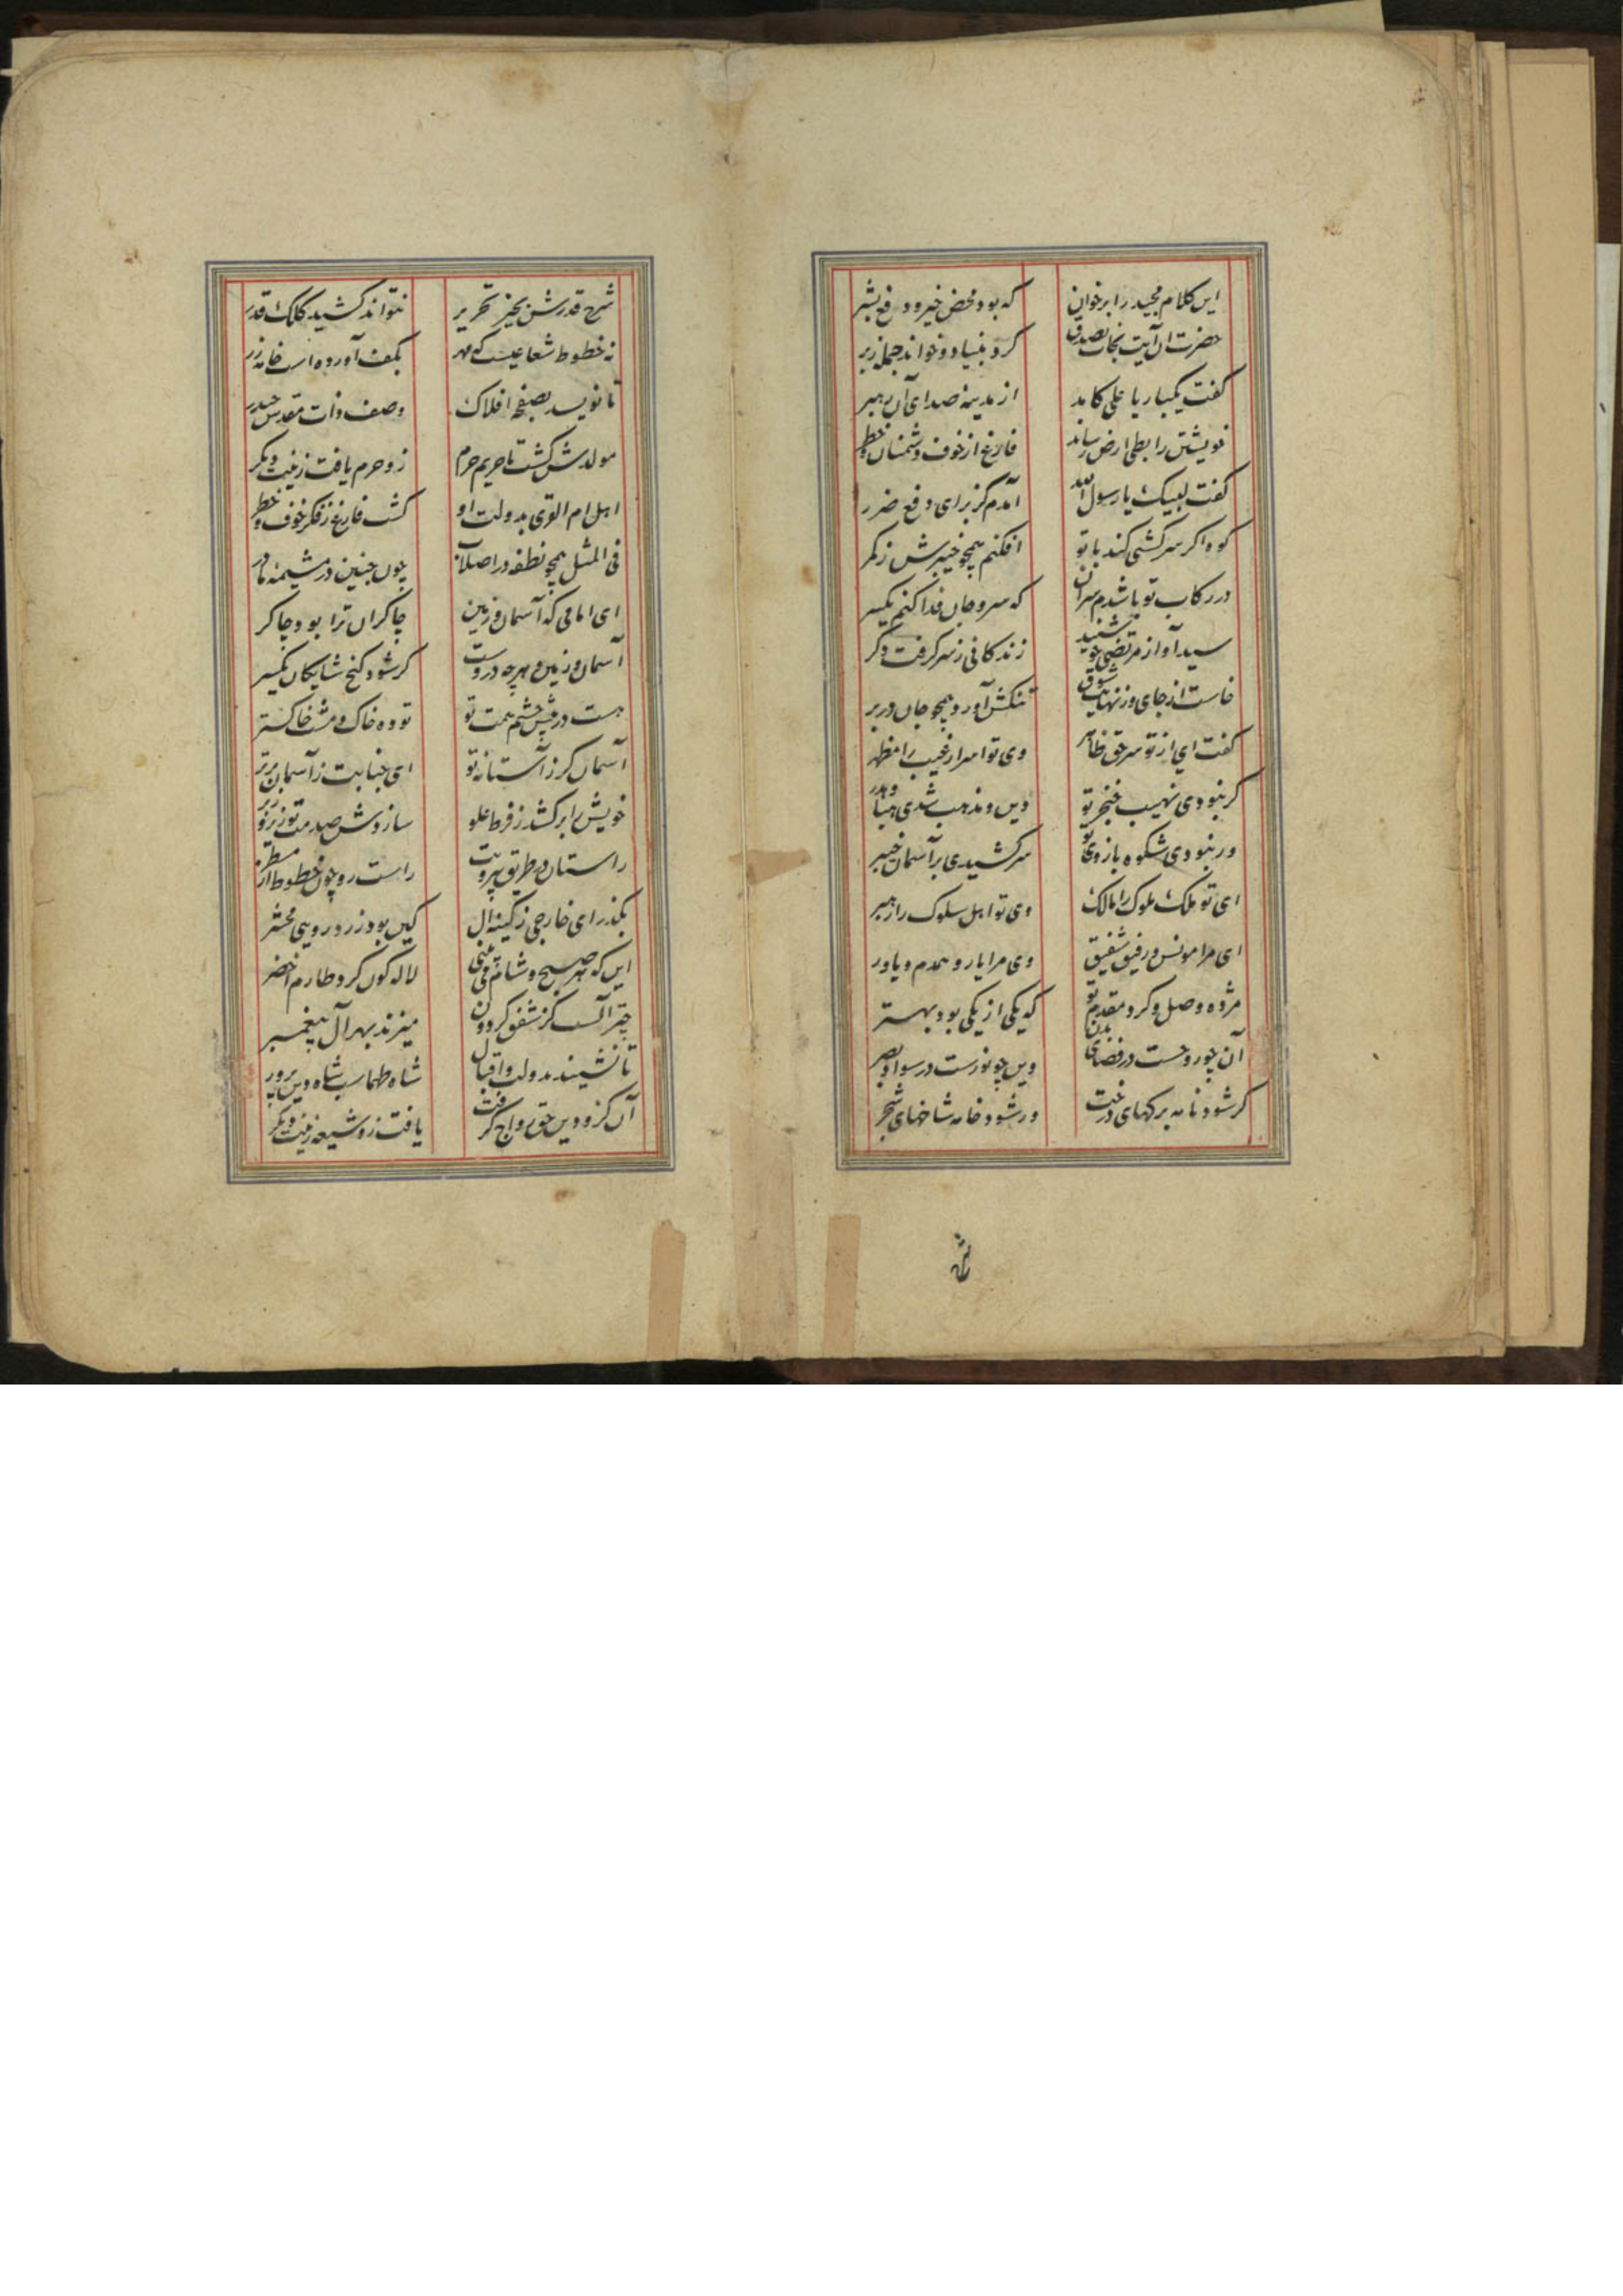 این کلام مجید را بر خوان که بود محض خیر و دفع بشر
حضرت آن آیت نجات بصدق کرد بنیاد و خواند جمله زبر
گفت یکبار یا علی کامد از مدینه صدای آن رهبر
خویشتن را بطی ارض رساند فارغ از خوف دشمنان و خطر
گفت لبیک یا رسول الله آمدم کز برای دفع ضرر
کوه اگر سرکشی کند با تو افکنم همچو خیبرش ز کمر
در رکاب تو باشدم سر آن که سر و جان فدا کنم یکسر
سید آواز مرتضی چو شنید زندکانی ز سر گرفت دگر
خاست از جای وز نهایت شوق تنکش آورد همچو جان در بر
گفت ای از تو سر حق ظاهر وی تو اسرار غیب را مظهر
گر نبودی نهیب خنجر تو دین و مذهب شدی هبا و هدر
ور نبودی شکوه بازوی تو سر کشیدی بر آسمان خیبر
ای تو ملک ملوک را مالک وی تو اهل سلوک را رهبر
ای مرا مونس و رفیق شفیق وی مرا یار و همدم و یاور
مژده وصل و گرد مقدم تو که یکی از یکی بود بهتر
آن چو روحست در فضای بدن وین چو نورست در سواد بصر
گر شود نامه برکهای درخت ور شود خامه شاخهای شجر
شرح
شرح قدرش بحیز تحریر نتواند کشید کلک قدر
نه خطوط شعاعیست که مهر بکف آورده است خامه زر
تا نویسد بصفحه افلاک وصف ذات مقدس حیدر
مولدش گشت تا حریم حرم زو حرم یافت زینت دیگر
اهل ام القری بدولت او گشت فارغ ز فکر خوف و خطر
فی المثل همچو نطفه در اصلاب چون جنین در مشیمه مادر
ای امامی که آسمان و زمین چاکران ترا بود چاکر
آسمان و زمین و هرچه دروست گر شود کنج شایکان یکسر
هست در پیش چشم همت تو توده خاک و مشت خاکستر
آسمان گر ز آستانه تو ای جنابت ز آسمان برتر
خویش را برکشد ز فرط علو سازدش صدمت تو زیر و زبر
راستان در طریق پیرویت راست رو چون خطوط از مسطر
بگذر ای خارجی ز کینه آل کین بود زرد رویی محشر
این که هر صبح و شام می بینی لاله کون کرد طارم اخضر
چتر آلست کز شفق گردون میزند بهر آل پیغمبر
تا نشیند بدولت و اقبال شاه طهماسب شاه دین پرور
آن کزو دین حق رواج گرفت یافت زو شیعه زینت دیگر